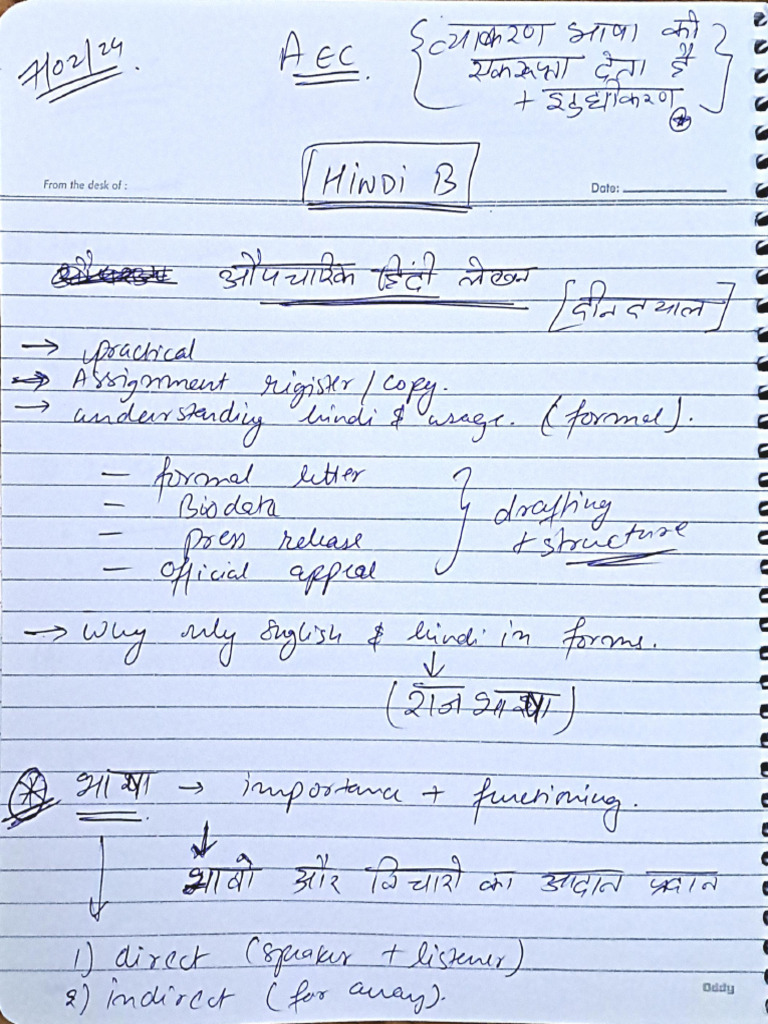 7/02/24
AEC
{व्याकरण भाषा को
एकरूपता देता है
+ शुद्धीकरण}
From the desk of :
HINDI B
Date:
औपचारिक हिंदी लेखन
[दीन दयाल]
→ practical
→ Assignment rigister/copy.
→ understanding hindi & usage. (formal).
— formal letter
— Biodata
— press release
— official appeal
} drafting
+ structure
→ Why only English & hindi in forms.
↓
(राज भाषा)
भाषा → importance + functioning.
↓
भावो और विचारो का आदान प्रदान
1) direct (speaker + listener)
2) indirect (far away).
Oddy